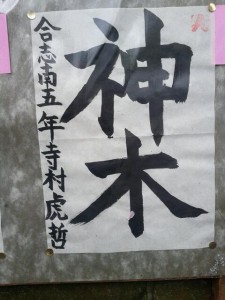 神木
合志南五年寺村虎哲